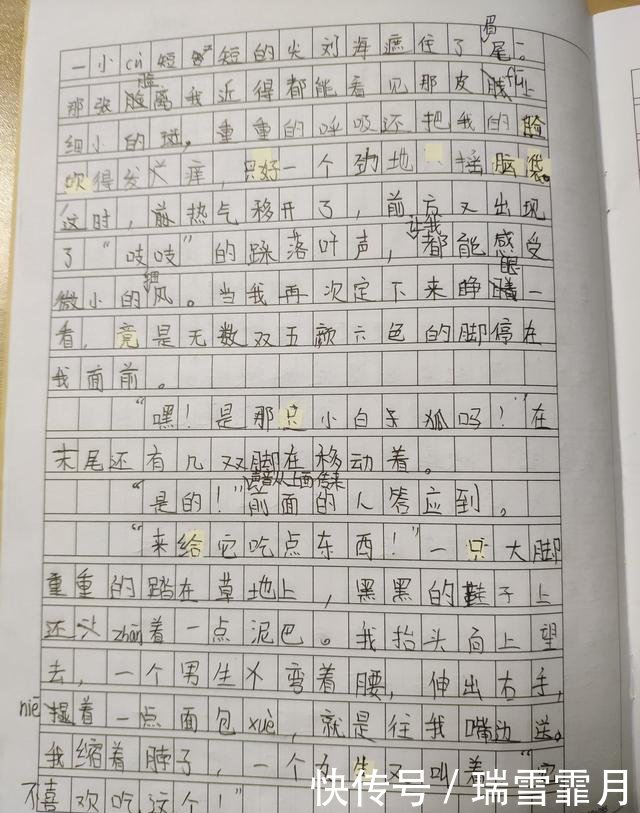 一小cù短短的尖刘海遮住了眉尾。
那张脸离我近得都能看见那皮肤上
细小的斑。重重的呼吸还把我的脸
吹得发痒,只好一个劲地摇脑袋。
这时,热气移开了,前方又出现
了“吱吱”的踩落叶声,让我都能感受
微小的细风。当我再次定下来睁眼一
看,竟是无数双五颜六色的脚停在
我面前。
“嘿!是那只小白狐吗!”在
末尾还有几双脚在移动着。
“是的!”声音从上面传来前面的人答应到。
“来给它吃点东西!”一只大脚
重重的踏在草地上,黑黑的鞋子上
还沾zhān着一点泥巴。我抬头向上望
去,一个男生弯着腰,伸出右手,
niē捏着一点面包xuè,就是往我嘴边送。
我缩着脖子,一个女生又叫着“它
不喜欢吃这个!”
快传号/瑞雪霏月